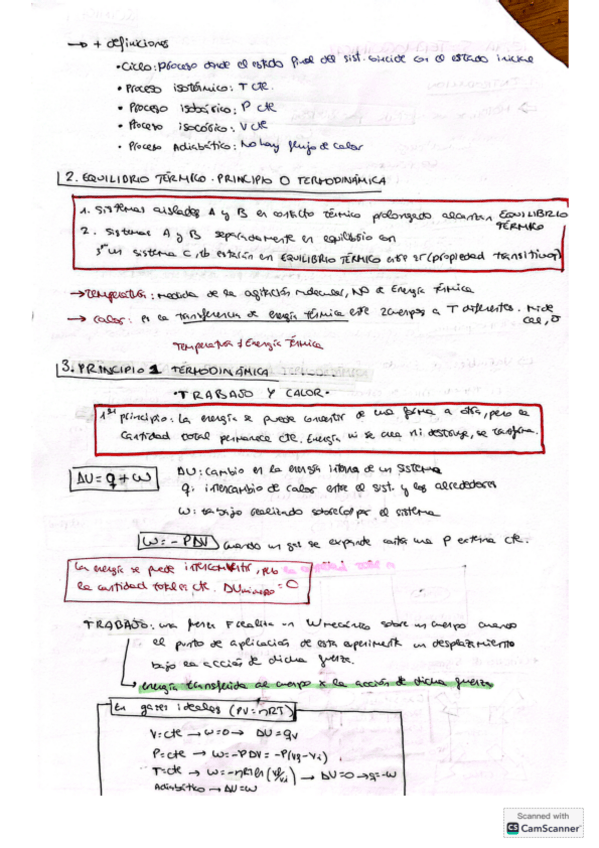 → + definiciones
• Ciclo: Proceso donde el estado final del sist. coincide con el estado inicial
• Proceso isotérmico: T cte.
• Proceso isobárico: P cte
• Proceso isocórico: V cte
• Proceso Adiabático: No hay flujo de calor
2. EQUILIBRIO TÉRMICO. PRINCIPIO 0 TERMODINÁMICA
1. Sistemas aislados A y B en contacto térmico prolongado alcanzan EQUILIBRIO TÉRMICO
2. Sistemas A y B separadamente en equilibrio con
3er un sistema C, tb estarán en EQUILIBRIO TÉRMICO entre sí (propiedad transitiva)
→ Temperatura: medida de la agitación molecular, NO de Energía térmica
→ Calor: es la transferencia de energía térmica entre 2 cuerpos a T diferentes. Mide cal, J
Temperatura ≠ Energía Térmica
3. PRINCIPIO 1 TERMODINÁMICA
• TRABAJO Y CALOR •
1er principio: La energía se puede convertir de una forma a otra, pero la
cantidad total permanece cte. Energía ni se crea ni destruye, se transforma.
ΔU = q + w
ΔU: cambio en la energía interna de un sistema
q: intercambio de calor entre el sist. y los alrededores
w: trabajo realizado sobre(o) por el sistema
w = -PΔV cuando un gas se expande contra una P externa cte.
La energía se puede intercambiar, pero
la cantidad total es cte. = 0
TRABAJO: una fuerza F realiza un W mecánico sobre un cuerpo cuando
el punto de aplicación de esta experimenta un desplazamiento
bajo la acción de dicha fuerza.
→ energía transferida al cuerpo x la acción de dicha fuerza
En gases ideales (PV = nRT)
V = cte → w = 0 → ΔU = qv
P = cte → w = -PΔV = -P(Vf - Vi)
T = cte → w = -nRT ln (Vf/Vi) → ΔU = 0 → q = -w
Adiabático → ΔU = w
Scanned with
CS CamScanner